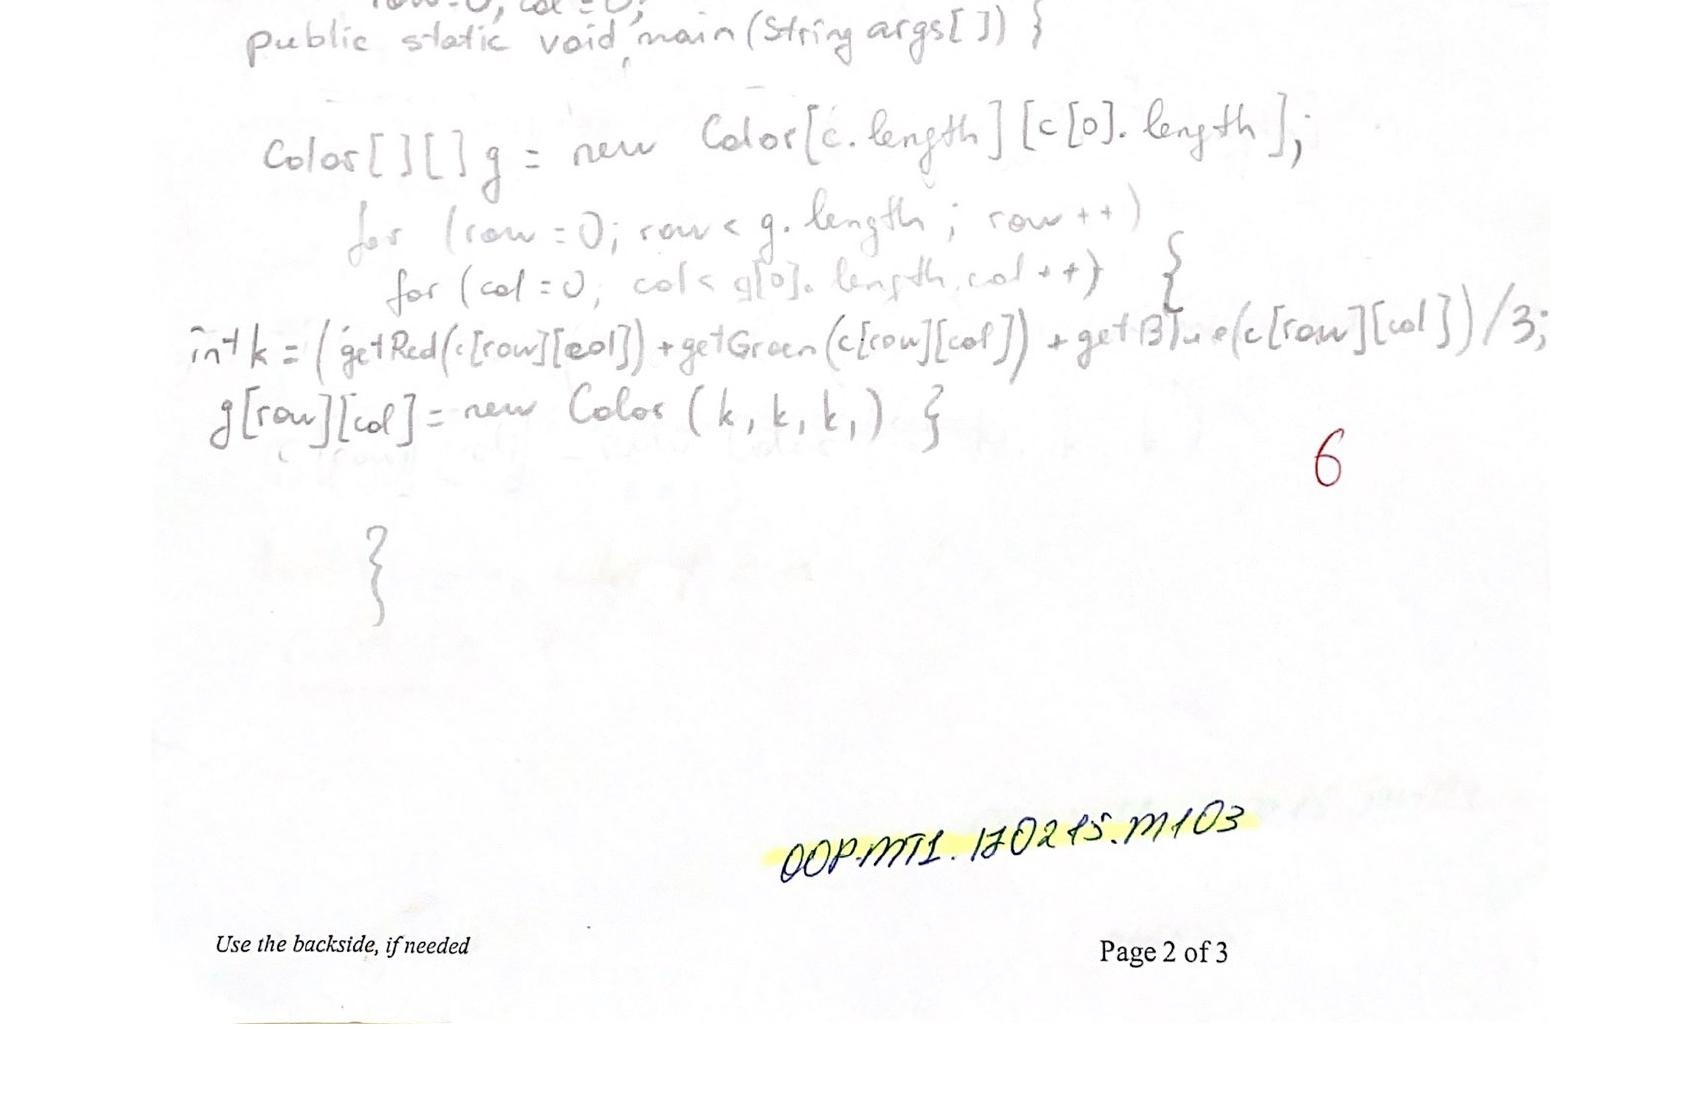 row=0, col=0;
public static void main(String args[]) }
Color[][] g = new Color[c.length][c[0].length];
for (row=0; row< g.length; row++)
for (col=0; col< g[0].length, col++) {
int k = (getRed(c[row][col])+getGreen(c[row][col]) + getBlue(c[row][col]))/3;
g[row][col]= new Color (k, k, k,) }
6
}
OOP.MT1.170215.M103
Use the backside, if needed
Page 2 of 3